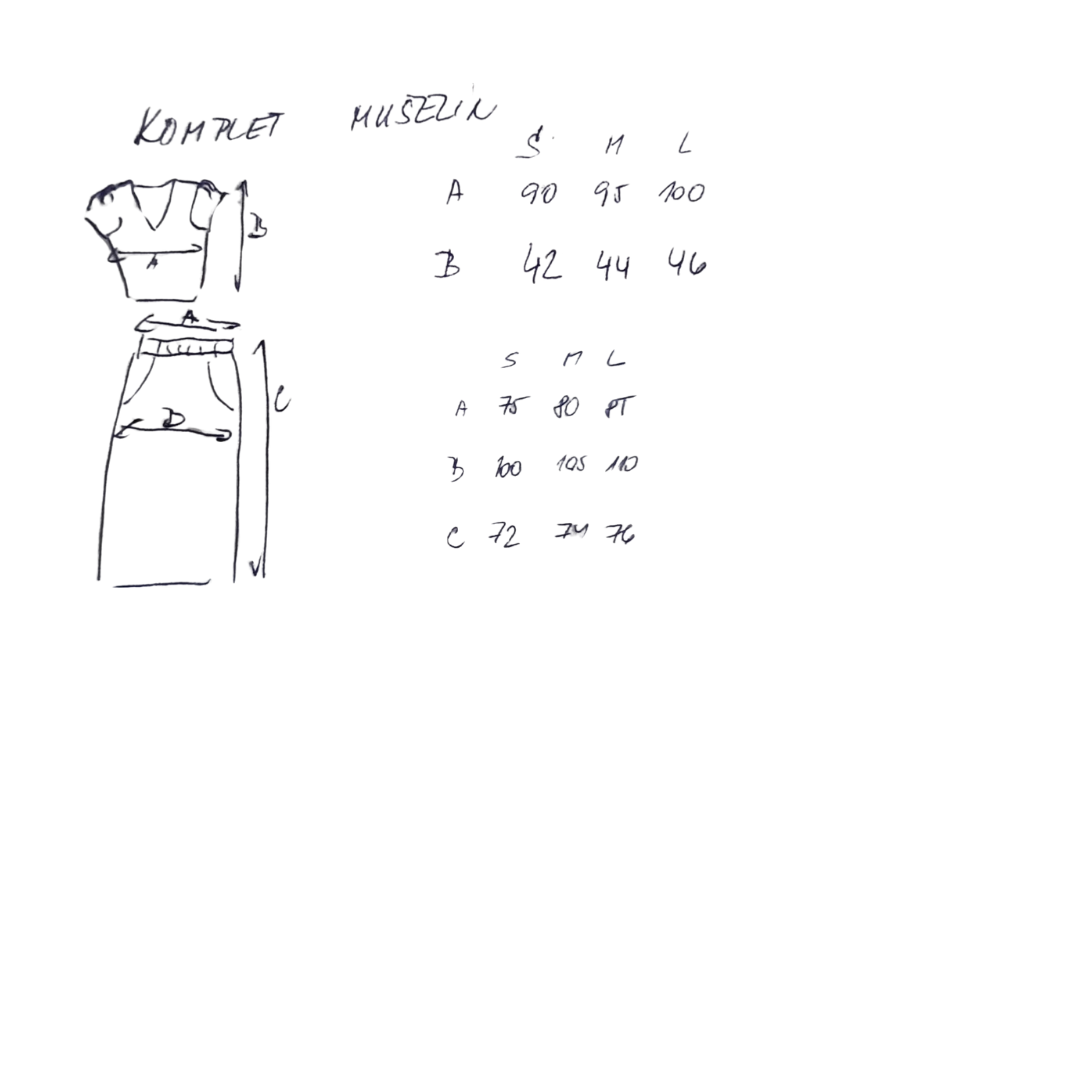 KOMPLET MUŚZLIN
S M L
A 90 95 100
B
B 42 44 46
A
A
S M L
C
A 75 80 85
D
B 100 105 110
C 72 74 76